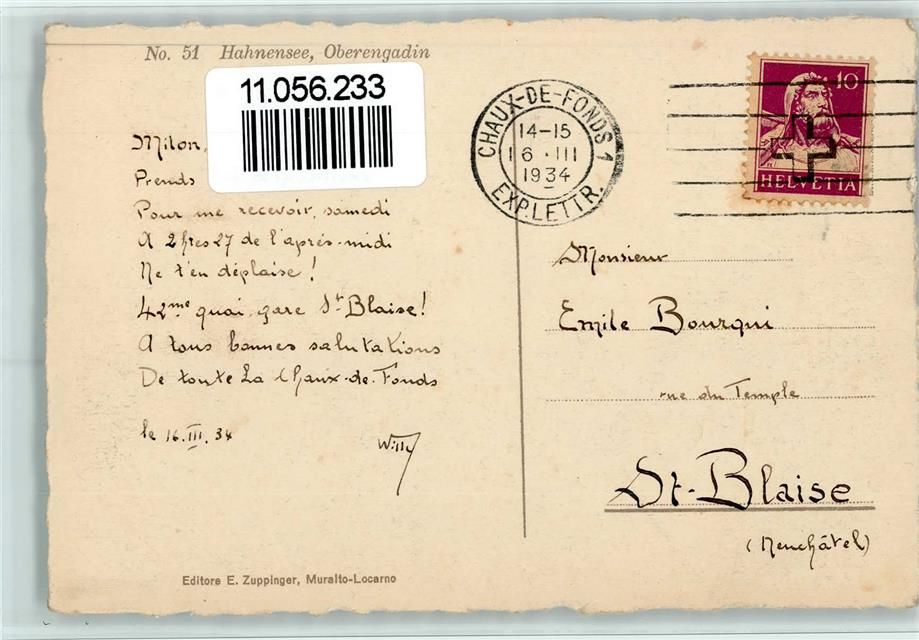 No. 51 Hahnensee, Oberengadin
11.056.233
Milon,
Prends
Pour me recevoir, samedi
A 2 hres 27 de l'après-midi
Ne t'en déplaise !
42me quai, gare St Blaise !
A tous bonnes salutations
De toute La Chaux-de-Fonds
le 16.III.34
Willy
Editore E. Zuppinger, Muralto-Locarno
CHAUX-DE-FONDS 1
14-15
16.III
1934
EXP.LETTR.
10
HELVETIA
Monsieur
Emile Bourqui
rue du Temple
St-Blaise
(Neuchâtel)